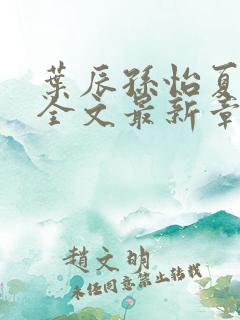 葉辰孫怡夏
全文最新章
趙文明
未經同意禁止轉載